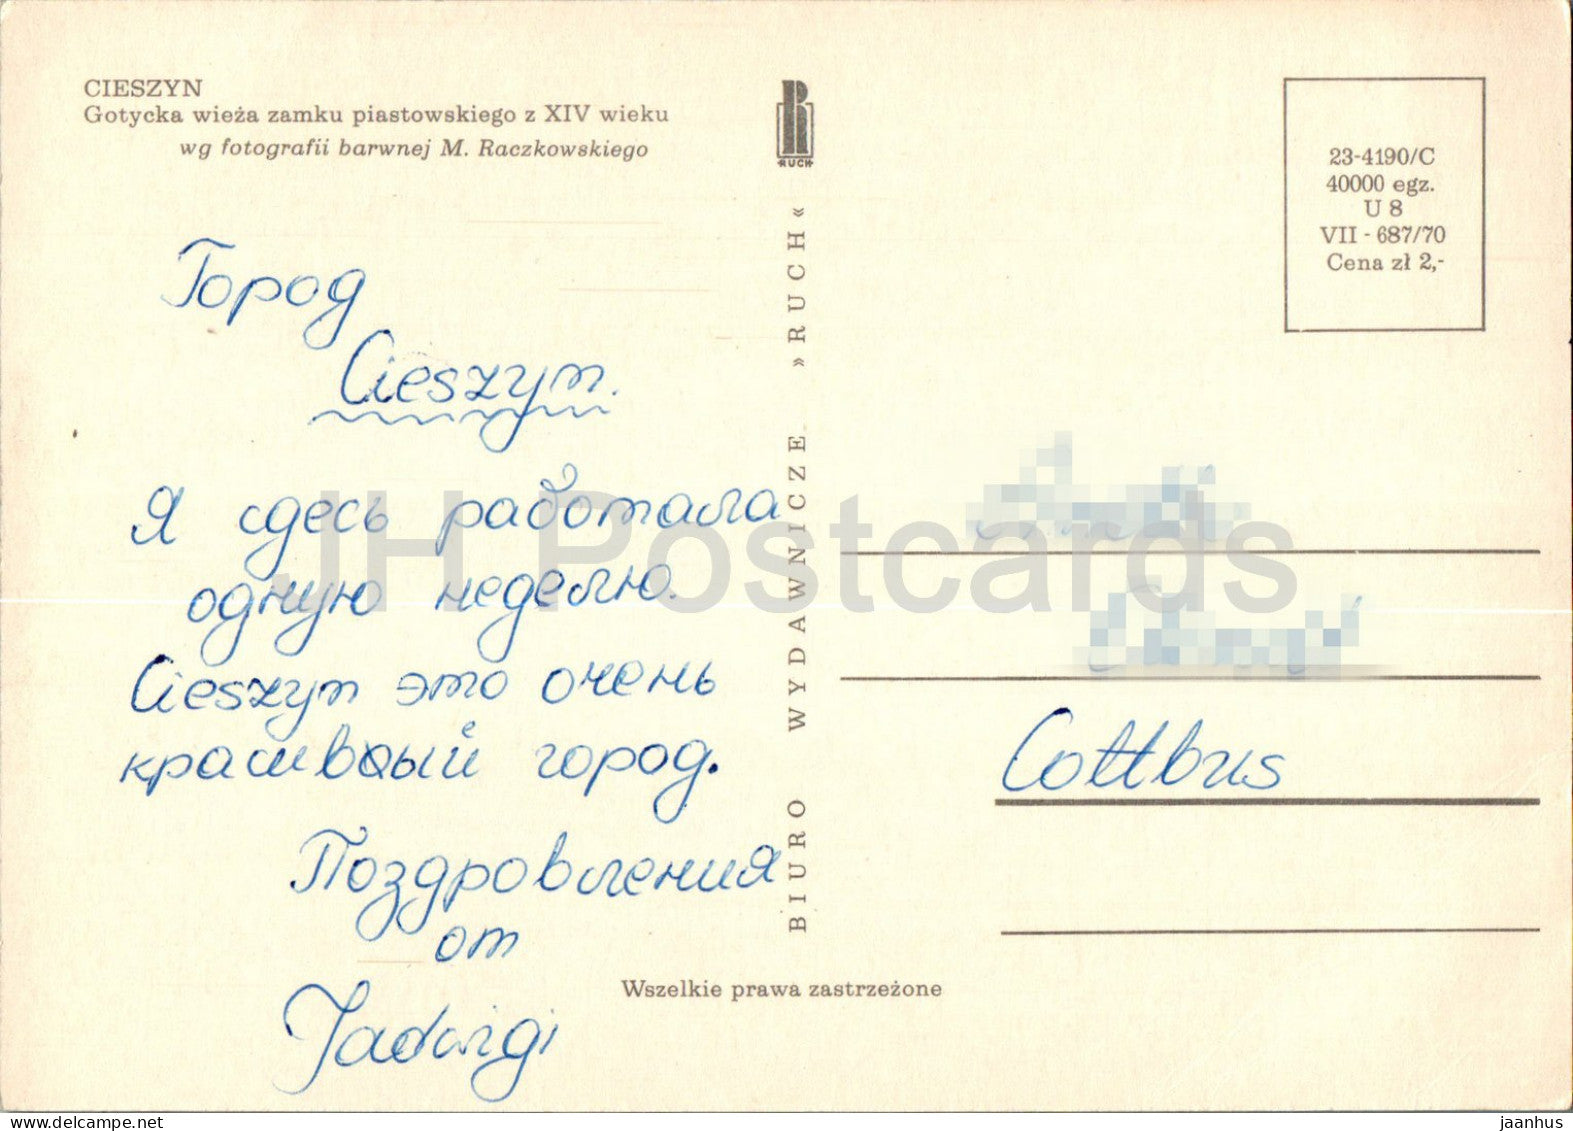 CIESZYN
Gotycka wieża zamku piastowskiego z XIV wieku
wg fotografii barwnej M. Raczkowskiego
RUCH
23-4190/C
40000 egz.
U 8
VII - 687/70
Cena zł 2,-
Город
Cieszyn.
Я сдесь работала
одную неделю.
Cieszyn это очень
красивый город.
Поздровления
от
Jadwigi
BIURO WYDAWNICZE »RUCH«
Cottbus
Wszelkie prawa zastrzeżone
JH Postcards
www.delcampe.net
jaanhus